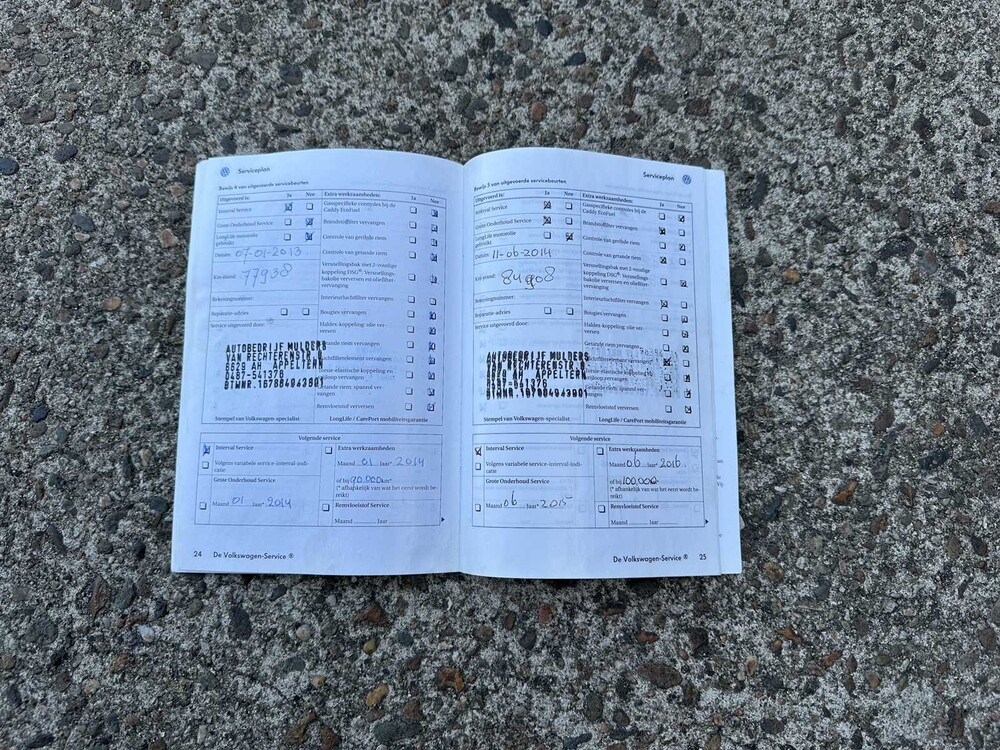 Serviceplan
Bewijs 4 van uitgevoerde servicebeurten
Uitgevoerd is: Ja Nee
Interval Service
Grote Onderhoud Service
LongLife motorolie
gebruikt
Datum: 07-01-2013
Km-stand: 77938
Rekeningnummer:
Reparatie-advies
Service uitgevoerd door:
AUTOBEDRIJF MULDERS
VAN RECHTERENSTR.8
6629 AH. APPELTERN
0487-541376
BTWNR.
Stempel van Volkswagen-specialist
Extra werkzaamheden: Ja Nee
Gasspecifieke controles bij de
Caddy EcoFuel
Brandstoffilter vervangen
Controle van geribde riem
Controle van getande riem
Versnellingsbak met 2-voudige
koppeling DSG®: Versnellings-
bakolie verversen en oliefilter-
vervanging
Interieurluchtfilter vervangen
Bougies vervangen
Haldex-koppeling: olie ver-
versen
Getande riem vervangen
Luchtfilterelement vervangen
Remvloeistof verversen
LongLife / CarePort mobiliteitsgarantie
Volgende service
Interval Service
Volgens variabele service-interval-indi-
catie
Grote Onderhoud Service
Maand 01 Jaar* 2014
Extra werkzaamheden
Maand 01 Jaar* 2014
of bij 90.000 km*
(* afhankelijk van wat het eerst wordt be-
reikt)
Remvloeistof Service
Maand Jaar
24 De Volkswagen-Service ®
Serviceplan
Bewijs 5 van uitgevoerde servicebeurten
Uitgevoerd is: Ja Nee
Interval Service
Grote Onderhoud Service
LongLife motorolie
gebruikt
Datum: 11-06-2014
Km-stand: 84908
Rekeningnummer:
Reparatie-advies
Service uitgevoerd door:
AUTOBEDRIJF MULDERS
VAN RECHTERENSTR.8
6629 AH. APPELTERN
0487-541376
BTWNR.
Stempel van Volkswagen-specialist
Extra werkzaamheden: Ja Nee
Gasspecifieke controles bij de
Caddy EcoFuel
Brandstoffilter vervangen
Controle van geribde riem
Controle van getande riem
Versnellingsbak met 2-voudige
koppeling DSG®: Versnellings-
bakolie verversen en oliefilter-
vervanging
Interieurluchtfilter vervangen
Bougies vervangen
Haldex-koppeling: olie ver-
versen
Getande riem vervangen
Remvloeistof verversen
LongLife / CarePort mobiliteitsgarantie
Volgende service
Interval Service
Volgens variabele service-interval-indi-
catie
Grote Onderhoud Service
Maand 06 Jaar* 2015
Extra werkzaamheden
Maand 06 Jaar* 2016
of bij 100.000
(* afhankelijk van wat het eerst wordt be-
reikt)
Remvloeistof Service
Maand Jaar
De Volkswagen-Service ® 25